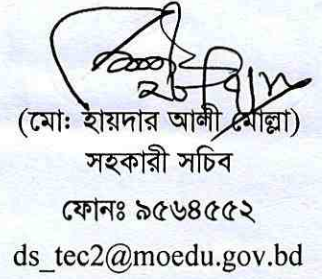 (মোঃ হায়দার আলী মোল্লা)
সহকারী সচিব
ফোনঃ ৯৫৬৪৫৫২
ds_tec2@moedu.gov.bd